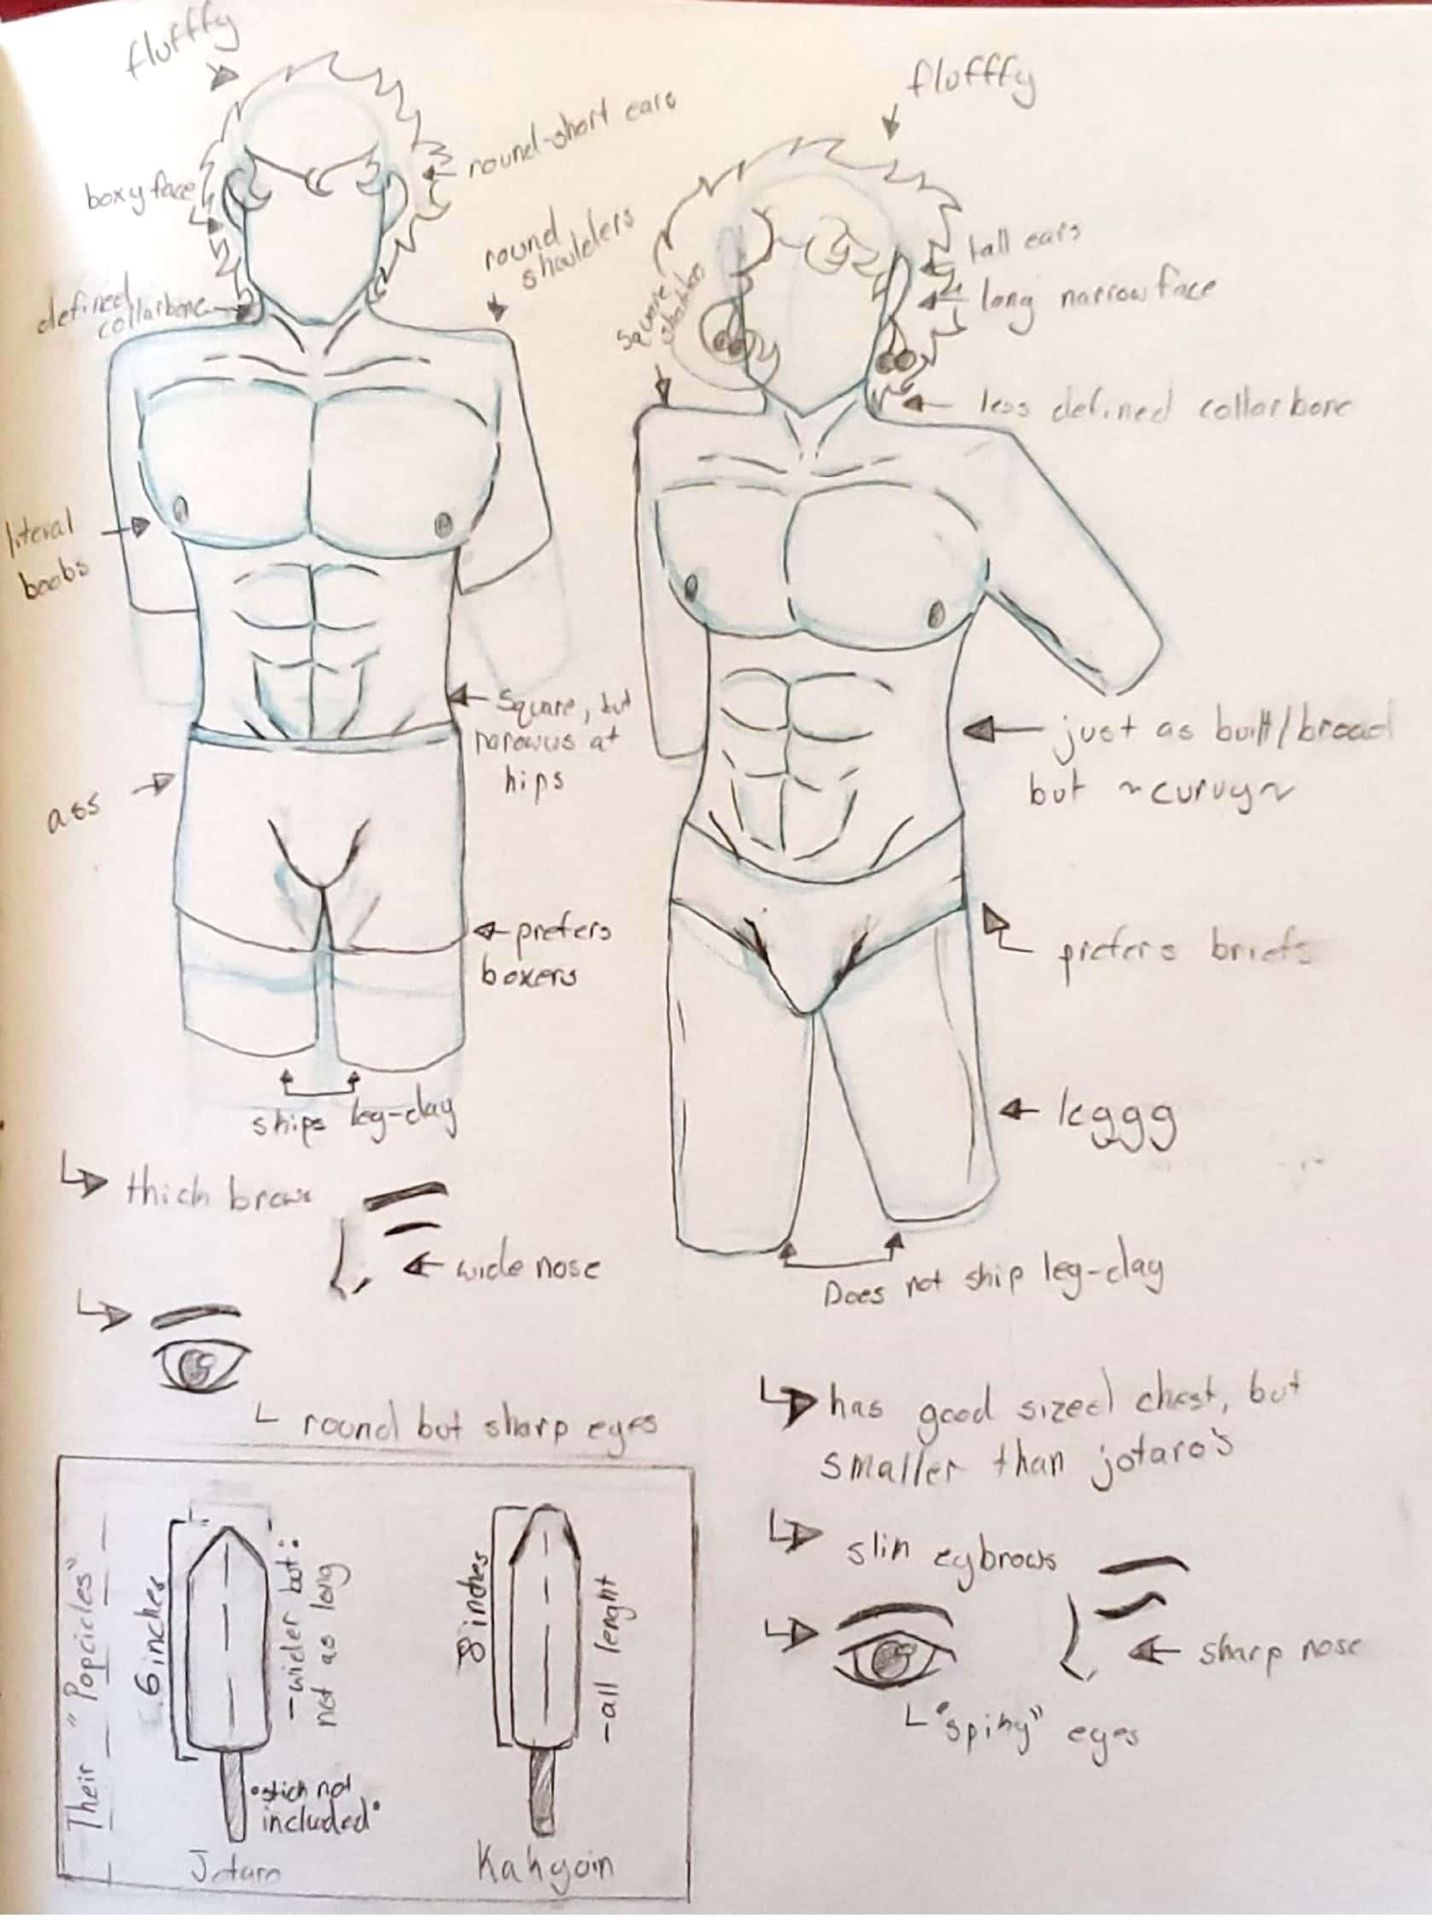 fluffffy
flufffy
round-short ears
boxy face
round
shoulders
defined
collarbone
Square
shoulders
tall ears
long narrow face
less defined collarbone
literal
boobs
Square, but
narowus at
hips
just as built/broad
but ~curvy~
ass
prefers
boxers
prefers briefs
leggg
ships leg-day
Does not ship leg-day
thich brows
wide nose
round but sharp eyes
has good sized chest, but
smaller than jotaro's
slin eybrows
sharp nose
"spiky" eyes
Their "Popcicles"
6 inches
-wider but:
not as long
8 inches
-all lenght
•stich not
included•
Jotaro
Kahyoin